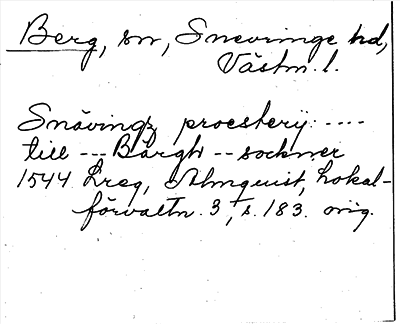 Berg, sn, Snevringe hd,
Västm. l.
Snävingz proesterij: ----
till --- Bärgh -- sockner
1544 Lreg, Almquist, Lokal-
förvaltn. 3, s. 183. orig.